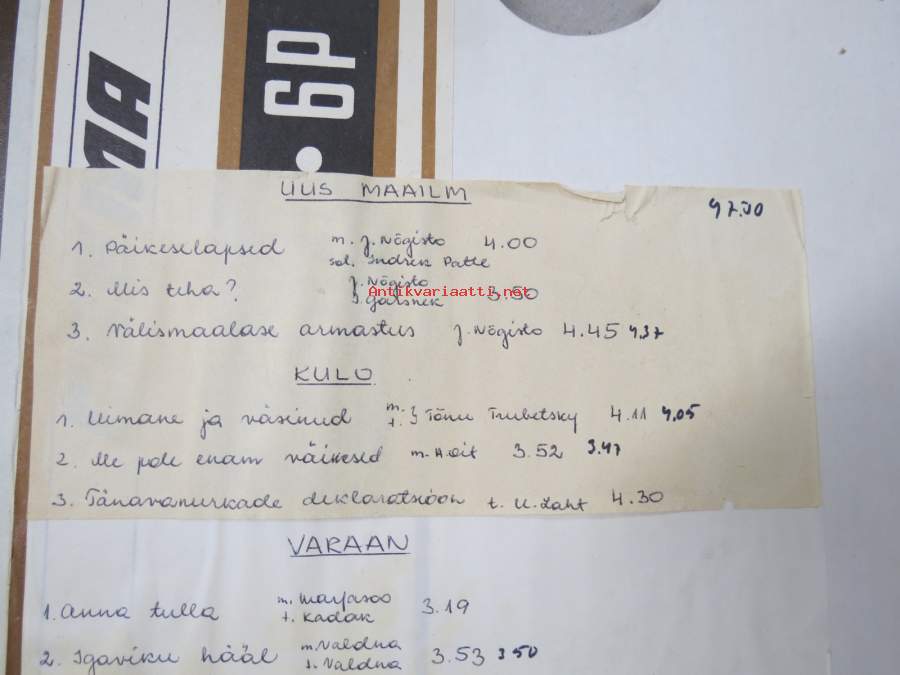 MA
6p
UUS MAAILM
47.00
1. Päikeselapsed m. J. Nõgisto 4.00
sol. Indrek Patte
2. Mis teha? J. Nõgisto 3.50
J. Garšnek
Antikvariaatti.net
3. Välismaalase armastus J. Nõgisto 4.45 4.37
KULO
1. Uimane ja väsinud m. t. } Tõnu Trubetsky 4.11 4.05
2. Me pole enam väikesed m. H. Oit 3.52 3.47
3. Tänavanurkade deklaratsioon t. U. Laht 4.30
VARAAN
1. Anna tulla m. Marjasoo 3.19
t. Kadak
2. Igaviku hääl m. Valdna 3.53 3 50
s. Valdna